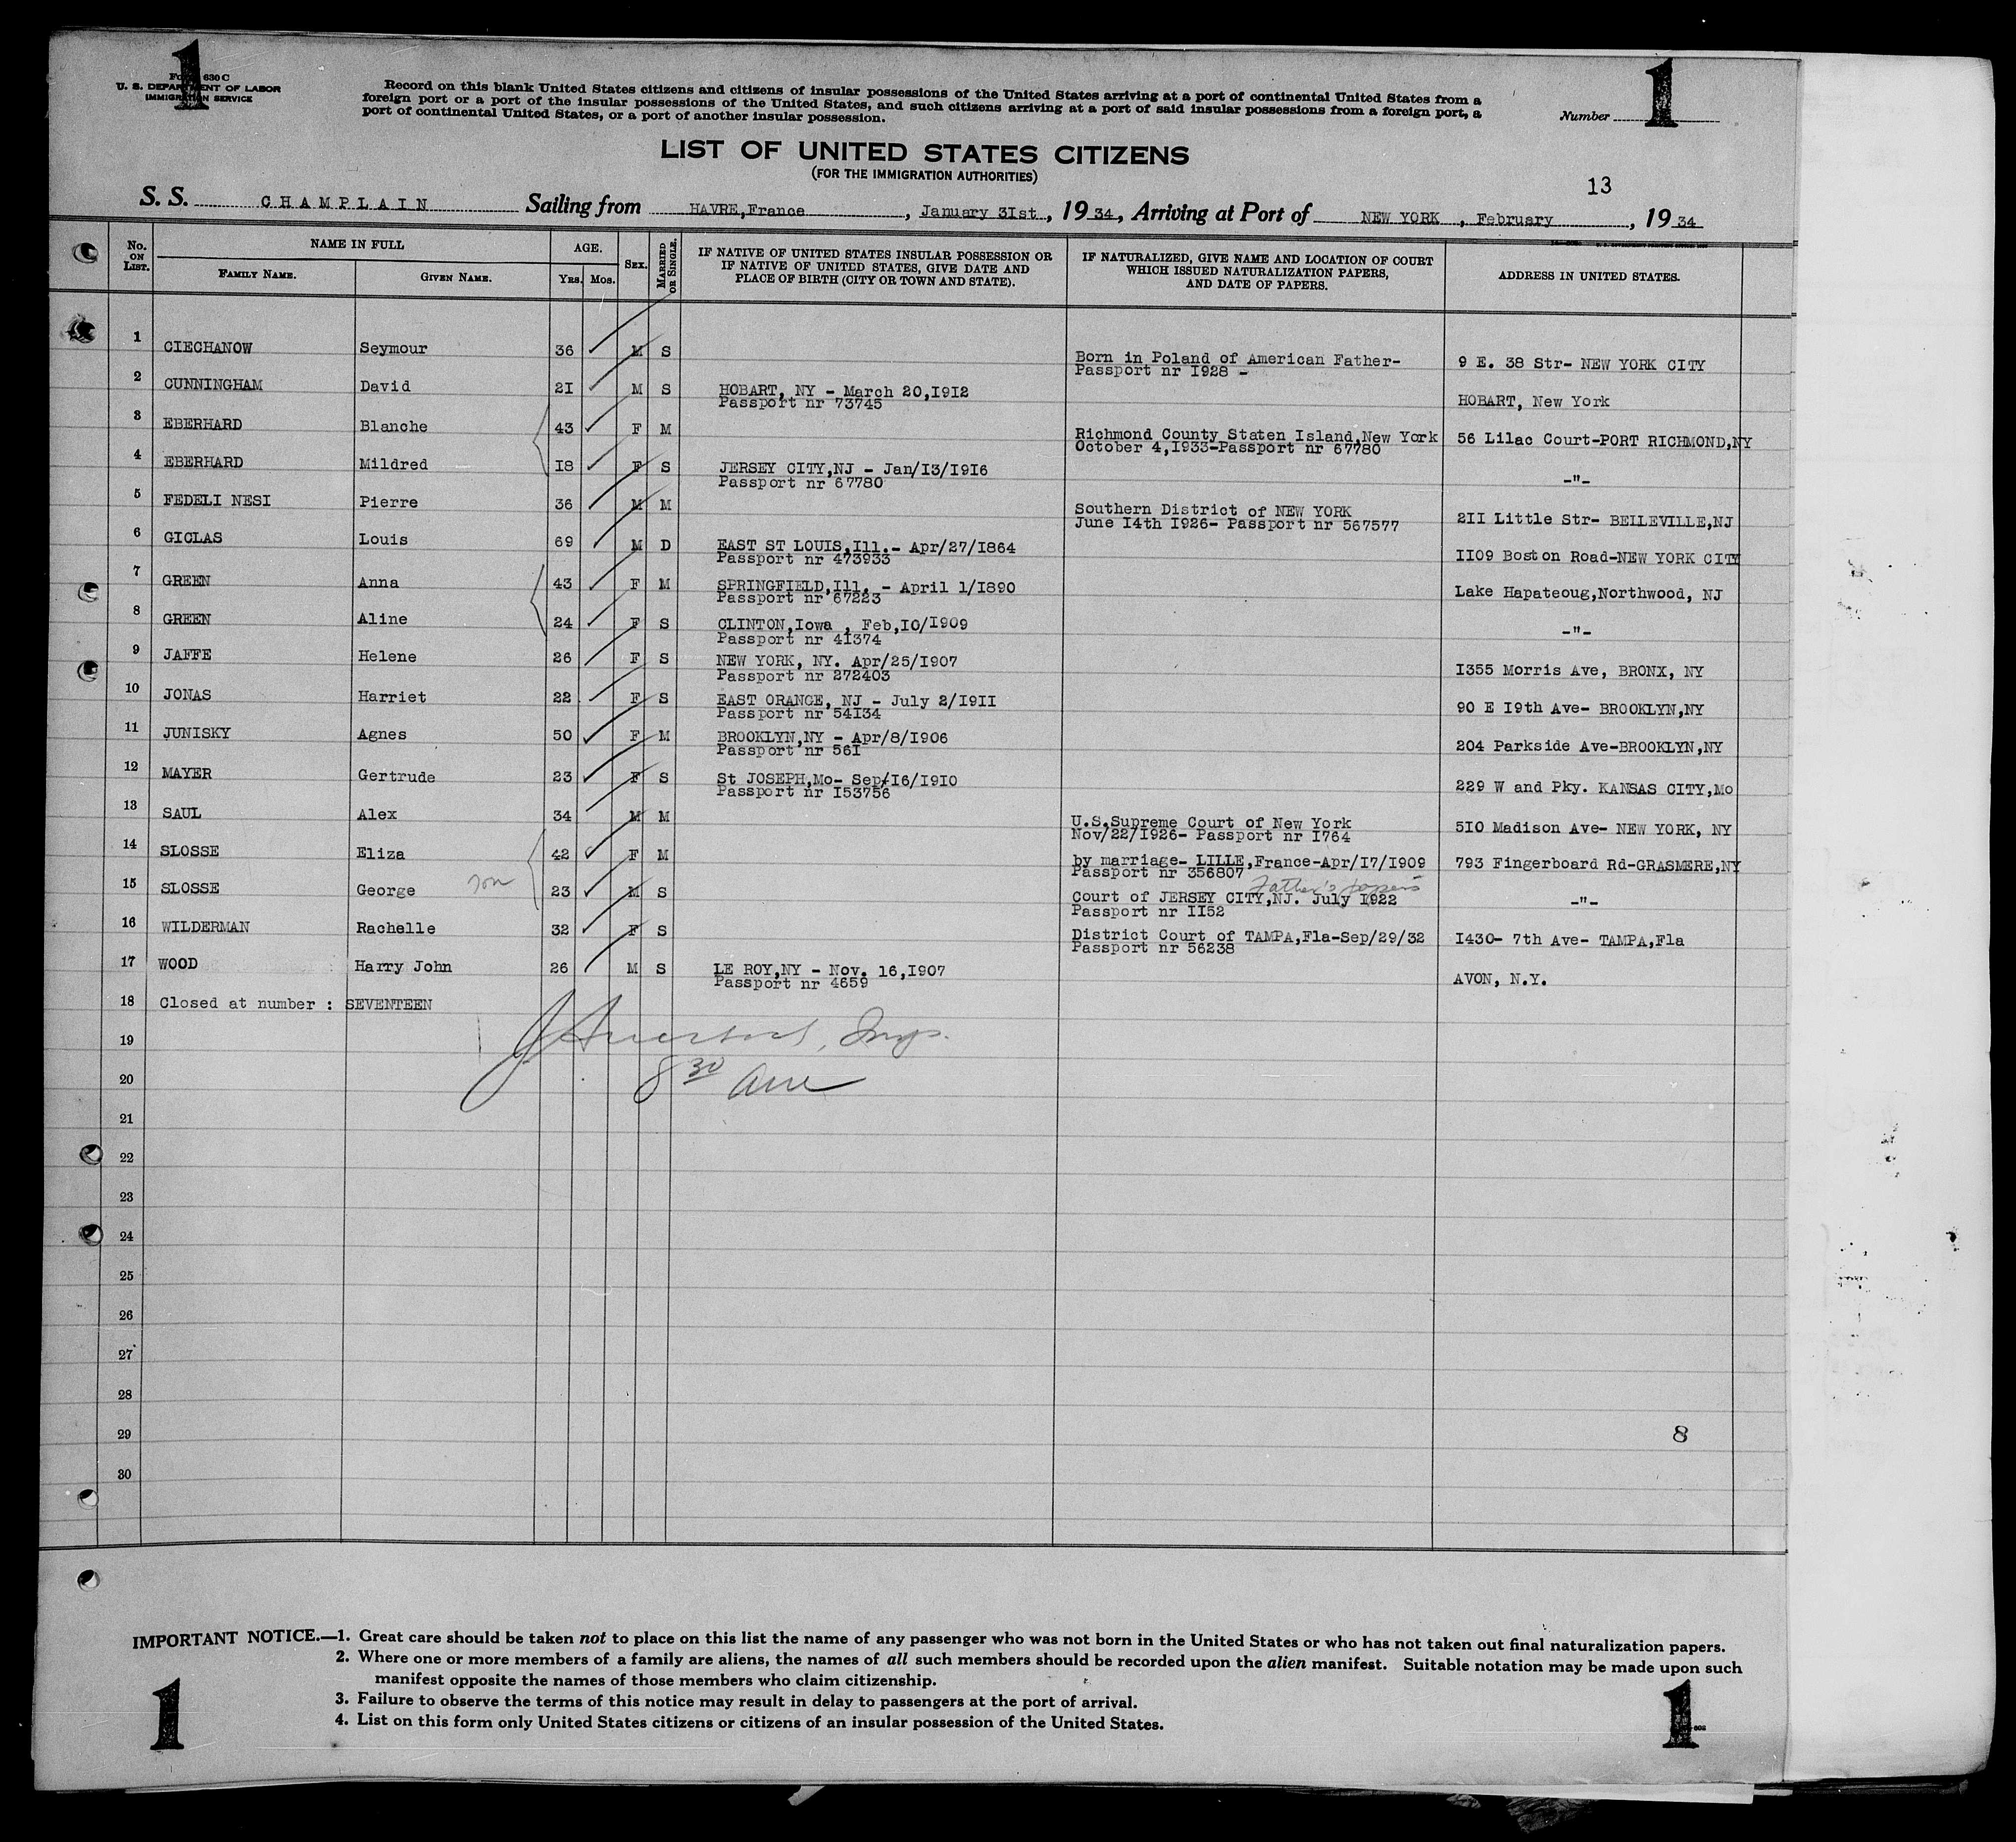 1
1
Form 630 C
U. S. DEPARTMENT OF LABOR
IMMIGRATION SERVICE
Record on this blank United States citizens and citizens of insular possessions of the United States arriving at a port of continental United States from a
foreign port or a port of the insular possessions of the United States, and such citizens arriving at a port of said insular possessions from a foreign port, a
port of continental United States, or a port of another insular possession.
Number
LIST OF UNITED STATES CITIZENS
(FOR THE IMMIGRATION AUTHORITIES)
13
S. S. CHAMPLAIN Sailing from HAVRE,France, January 3Ist, 1934, Arriving at Port of NEW YORK, February, 1934
No. ON LIST. NAME IN FULL AGE. SEX. MARRIED OR SINGLE. IF NATIVE OF UNITED STATES INSULAR POSSESSION OR IF NATIVE OF UNITED STATES, GIVE DATE AND PLACE OF BIRTH (CITY OR TOWN AND STATE). IF NATURALIZED, GIVE NAME AND LOCATION OF COURT WHICH ISSUED NATURALIZATION PAPERS, AND DATE OF PAPERS. ADDRESS IN UNITED STATES.
FAMILY NAME. GIVEN NAME. YRS. MOS.
1 CIECHANOW Seymour 36 M S Born in Poland of American Father- 9 E. 38 Str- NEW YORK CITY
Passport nr I928 -
2 CUNNINGHAM David 2I M S HOBART, NY - March 20,I9I2 HOBART, New York
Passport nr 73745
3 EBERHARD Blanche 43 F M Richmond County Staten Island,New York 56 Lilac Court-PORT RICHMOND,NY
October 4,I933-Passport nr 67780
4 EBERHARD Mildred I8 F S JERSEY CITY,NJ - Jan/I3/I9I6 -"-
Passport nr 67780
5 FEDELI NESI Pierre 36 M M Southern District of NEW YORK 2II Little Str- BELLEVILLE,NJ
June I4th I926- Passport nr 567577
6 GICLAS Louis 69 M D EAST ST LOUIS,Ill.- Apr/27/I864 II09 Boston Road-NEW YORK CITY
Passport nr 473933
7 GREEN Anna 43 F M SPRINGFIELD,Ill. - April 1/I890 Lake Hapateoug,Northwood, NJ
Passport nr 67223
8 GREEN Aline 24 F S CLINTON,Iowa , Feb,I0/I909 -"-
Passport nr 4I374
9 JAFFE Helene 26 F S NEW YORK, NY. Apr/25/I907 I355 Morris Ave, BRONX, NY
Passport nr 272403
10 JONAS Harriet 22 F S EAST ORANGE, NJ - July 2/I9II 90 E I9th Ave- BROOKLYN,NY
Passport nr 54I34
11 JUNISKY Agnes 50 F M BROOKLYN,NY - Apr/8/I906 204 Parkside Ave-BROOKLYN,NY
Passport nr 56I
12 MAYER Gertrude 23 F S St JOSEPH,Mo- Sep/I6/I9I0 229 W and Pky. KANSAS CITY,Mo
Passport nr I53756
13 SAUL Alex 34 M M U.S.Supreme Court of New York 5I0 Madison Ave- NEW YORK, NY
Nov/22/I926- Passport nr I764
14 SLOSSE Eliza 42 F M by marriage- LILLE,France-Apr/I7/I909 793 Fingerboard Rd-GRASMERE,NY
Passport nr 356807
Father's papers
15 SLOSSE George son 23 M S Court of JERSEY CITY,NJ. July I922 -"-
Passport nr II52
16 WILDERMAN Rachelle 32 F S District Court of TAMPA,Fla-Sep/29/32 I430- 7th Ave- TAMPA,Fla
Passport nr 56238
17 WOOD Harry John 26 M S LE ROY,NY - Nov. 16,I907 AVON, N.Y.
Passport nr 4659
18 Closed at number : SEVENTEEN
19
20 8 30 am
21
22
23
24
25
26
27
28
29 8
30
IMPORTANT NOTICE.—1. Great care should be taken not to place on this list the name of any passenger who was not born in the United States or who has not taken out final naturalization papers.
2. Where one or more members of a family are aliens, the names of all such members should be recorded upon the alien manifest. Suitable notation may be made upon such
manifest opposite the names of those members who claim citizenship.
3. Failure to observe the terms of this notice may result in delay to passengers at the port of arrival.
4. List on this form only United States citizens or citizens of an insular possession of the United States.
1
1